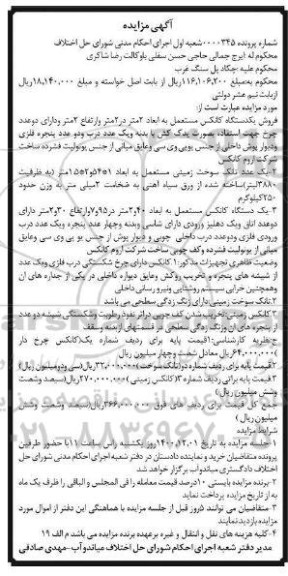 آگهی مزایده
شماره پرونده ۰۰۰۰۳۴۵شعبه اول اجرای احکام مدنی شورای حل اختلاف
محکوم له ایرج جمالی حاجی حسن سفلی باوکالت رضا شاکری
محکوم علیه :چگاد پل سنگ غرب
بمبلغ ۱۱۶,۱۰۶,۲۰۰ریال از بابت اصل خواسته و مبلغ ۱۸,۱۴۰,۰۰۰ریال
ازبابت نیم عشر دولتی
مورد مزایده عبارت است از:
فروش یکدستگاه کانکس مستعمل به ابعاد ۲متر در۲متر وارتفاع ۲متر ودارای دوعدد
چرخ جهت استفاده بصورت یدک کش با بدنه ویک عدد درب ودو عدد پنجره فلزی
ودیوار پوش داخلی از جنس یوپی وی سی وعایق میانی از جنس یونولیت فشرده ساخت
شرکت اروم کانکس
۲-یک عدد تانک سوخت زمینی مستعمل به ابعاد
لیتر)ساخته شده از ورق سیاه آهنی به ضخامت ۲میلی متر به وزن حدود
۲۵۰کیلوگرم
۳-یک دستگاه کانکس مستعمل به ابعاد
دوعدد اتاق ویک دهلیز ورودی دارای شاسی وبدنه وچهار عدد پنجره ویک عدد درب
ورودی فلزی ودوعدد درب داخلی چوبی و دیوار پوش از جنس یو پی وی سی وعایق
میانی از یونولیت فشرده وکف چوبی ساخت شرکت اروم کانکس
وضعیت ظاهری تجهیزات مذکور:۱ کانکس دارای چرخ شکستگی درب فلزی ویک عدد
از شیشه های پنجره و تخریب روکش وعایق دیواره داخلی در یکی از جداره های آن
وهمچنین خرابی سیستم روشنایی ونیرو رسانی داخلی
۲تانک سوخت زمینی دارای زنگ زدگی سطحی می باشد
۳کانکس زمینی تخریب شدن کف چوبی دراثر نفوذ رطوبت وشکستگی شیشه دو عدد
از پنجره های آن وزنگ زدگی سطحی در قسمتهای ازبدنه وسقف
ج-نظریه کارشناسی:۱قیمت پایه برای ردیف شماره یک(کانکس چرخ دار
)۶۴,۰۰۰,۰۰۰ریال معادل شصت وچهار میلیون ریال
۲-قیمت پایه برای ردیف شماره دو(تانک سوخت)۳۲,۰۰۰,۰۰۰(سی ودومیلیون ریال)
۳-قیمت پایه برای ردیف شماره۳( کانکس زمینی )۲۷۰,۰۰۰,۰۰۰ریال
میلیون ریال)
جمع کل قیمت برای ردیف های فوق ۳۶۶,۰۰۰,۰۰۰ریال(سیصد وشصت وشش
میلیون ریال)
شرایط مزایده
۱-جلسه مزایده به تاریخ ۱۴۰۰,۱۲,۰۱روز یکشنبه راس ساعت ۱۱با حضور طرفین
پرونده متقاضیان خرید و نماینده دادستان در دفتر شعبه اجرای احکام مدنی شورای حل
اختلاف دادگستری میاندوآب برگزار خواهد شد
۲-برنده مزایده بایستی ۱۰درصد قیمت معامله را فی المجلس و الباقی را ظرف یک ماه
به از تاریخ مزایده پرداخت نماید
۳- متقاضیان می توانند ۵روز قبل از جلسه مزایده با هماهنگی این دفتر از اموال مورد
مزایده بازدید نمایند
۴-کلیه هزینه های نقل و انتقال و غیره برعهده برنده مزایده می باشد م الف ۱۹
مدیر دفتر شعبه اجرای احکام شورای حل اختلاف میاندوآب -مهدی صادقی